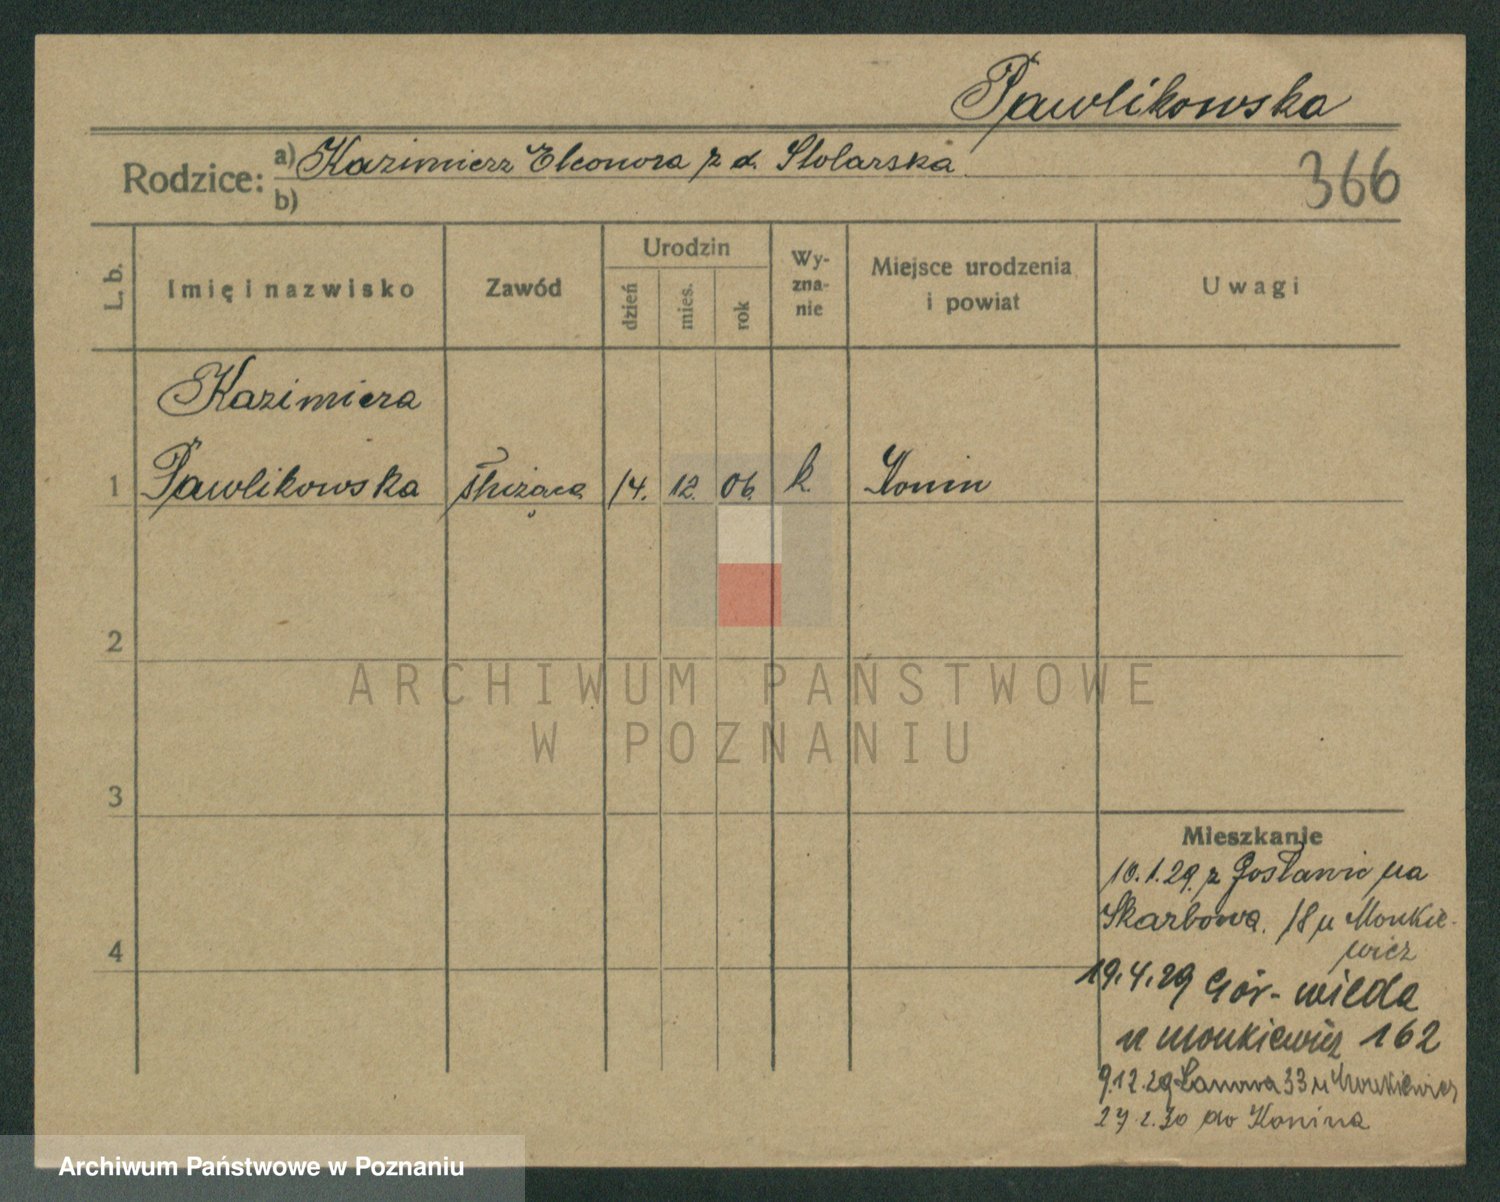 Pawlikowska
Rodzice:
a) Kazimierz Eleonora z d. Stolarska
b)
366
L. b.
Imię i nazwisko
Zawód
Urodzin
dzień
mies.
rok
Wy-
zna-
nie
Miejsce urodzenia
i powiat
Uwagi
Kazimiera
1 Pawlikowska służąca 14. 12. 06. k. Konin
2
ARCHIWUM PAŃSTWOWE
W POZNANIU
3
Mieszkanie
10.1.29 z Gosławic na
Skarbowa. 18 u Monkie-
wicz
4
19.4.29 Gór- wilda
u monkiewicz 162
9.12.29 Łanowa 33 u Monkiewicz
27.2.30 do Konina
Archiwum Państwowe w Poznaniu